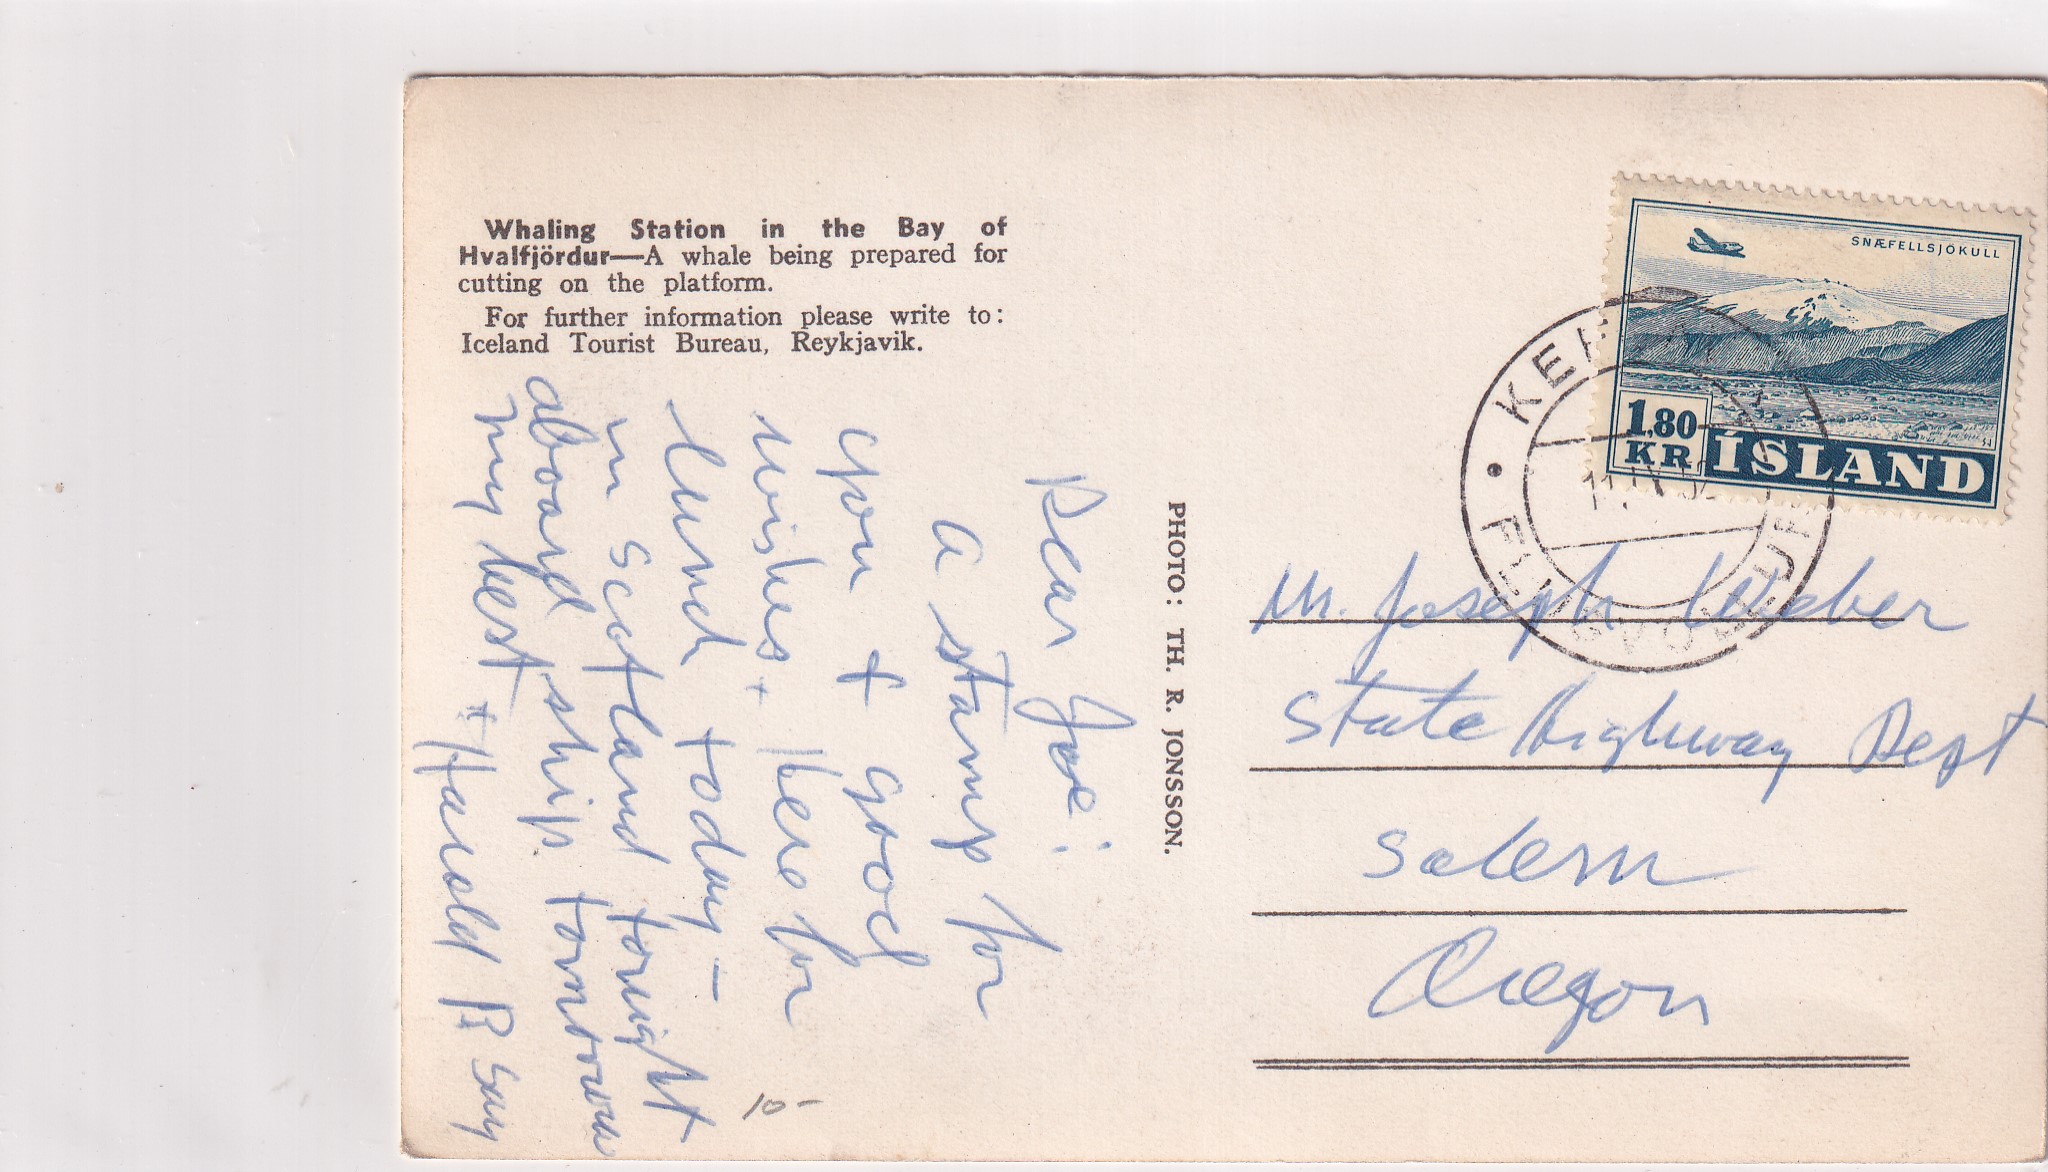 Whaling Station in the Bay of
Hvalfjördur—A whale being prepared for
cutting on the platform.
For further information please write to:
Iceland Tourist Bureau, Reykjavik.
Dear Joe:
A stamp for
you + good
wishes. Here for
lunch today –
in Scotland tonight
aboard ship tomorrow
my best + Harold B Say
10-
PHOTO: TH. R. JONSSON.
SNÆFELLSJÖKULL
1.80
KR ÍSLAND
KEF
FLUGVÖLLUR
M. Joseph Weber
State Highway Dept
Salem
Oregon